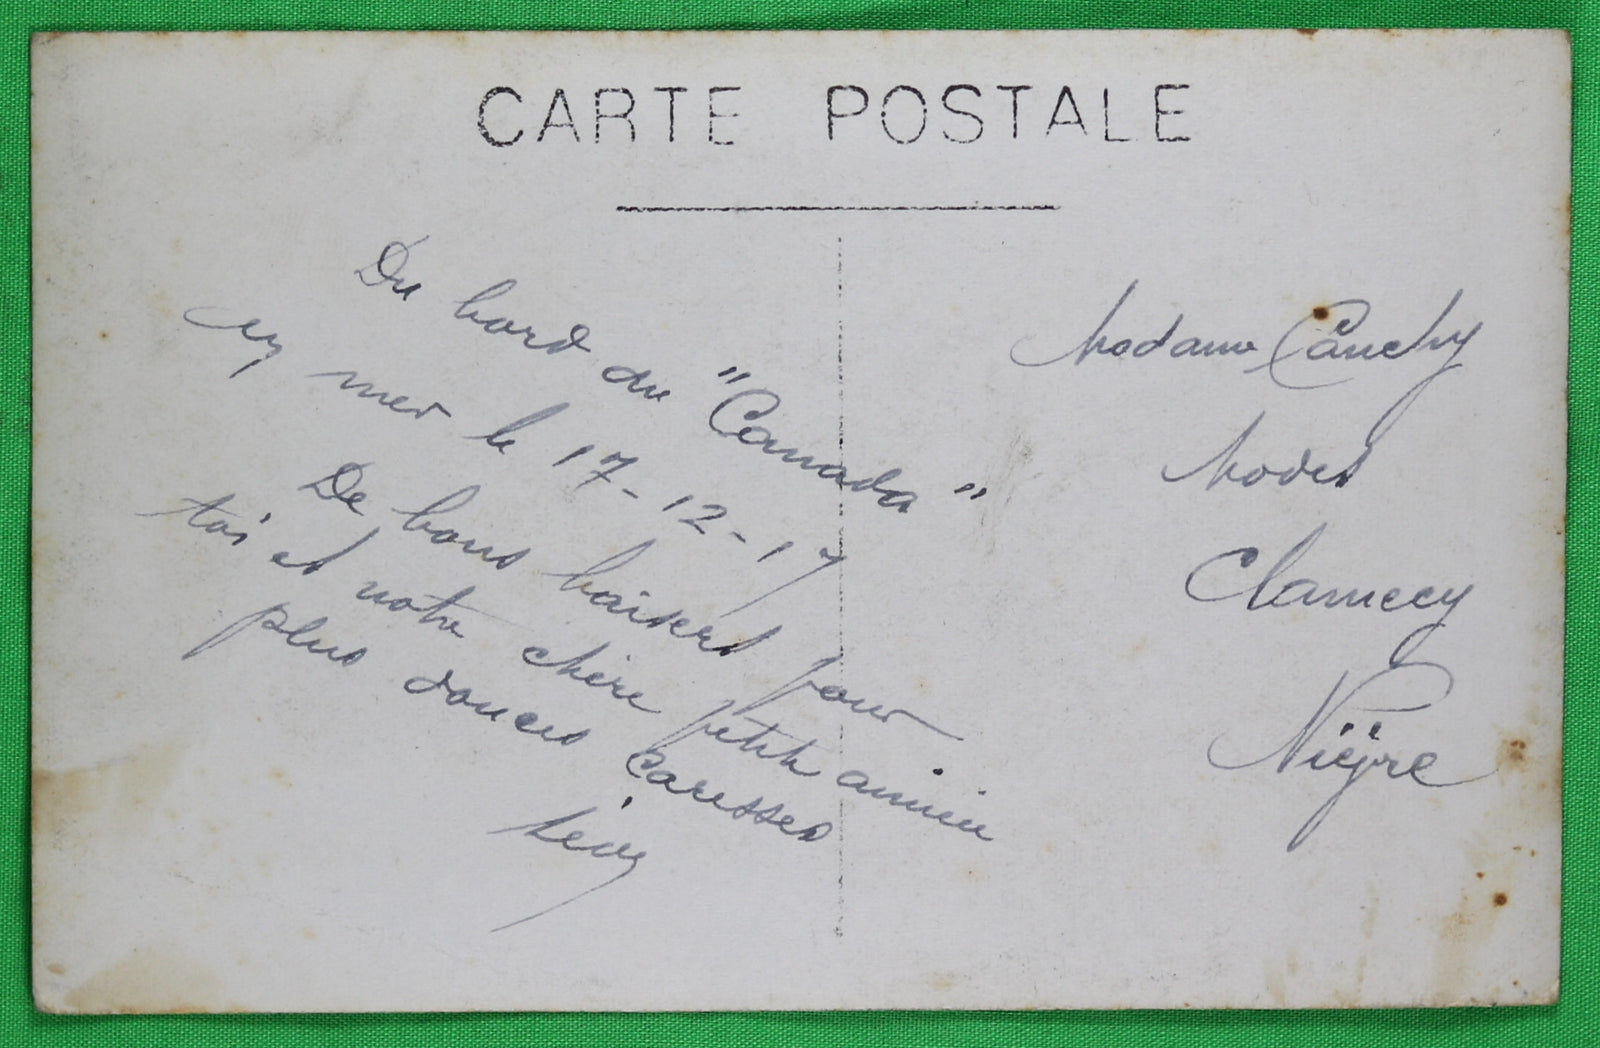 CARTE POSTALE
Du bord du "Canada"
en mer le 17-12-17
De bons baisers pour
toi et notre chère petite amiee
plus douces caresses
Léon
Madame Cauchy
Modes
Clamecy
Nièvre